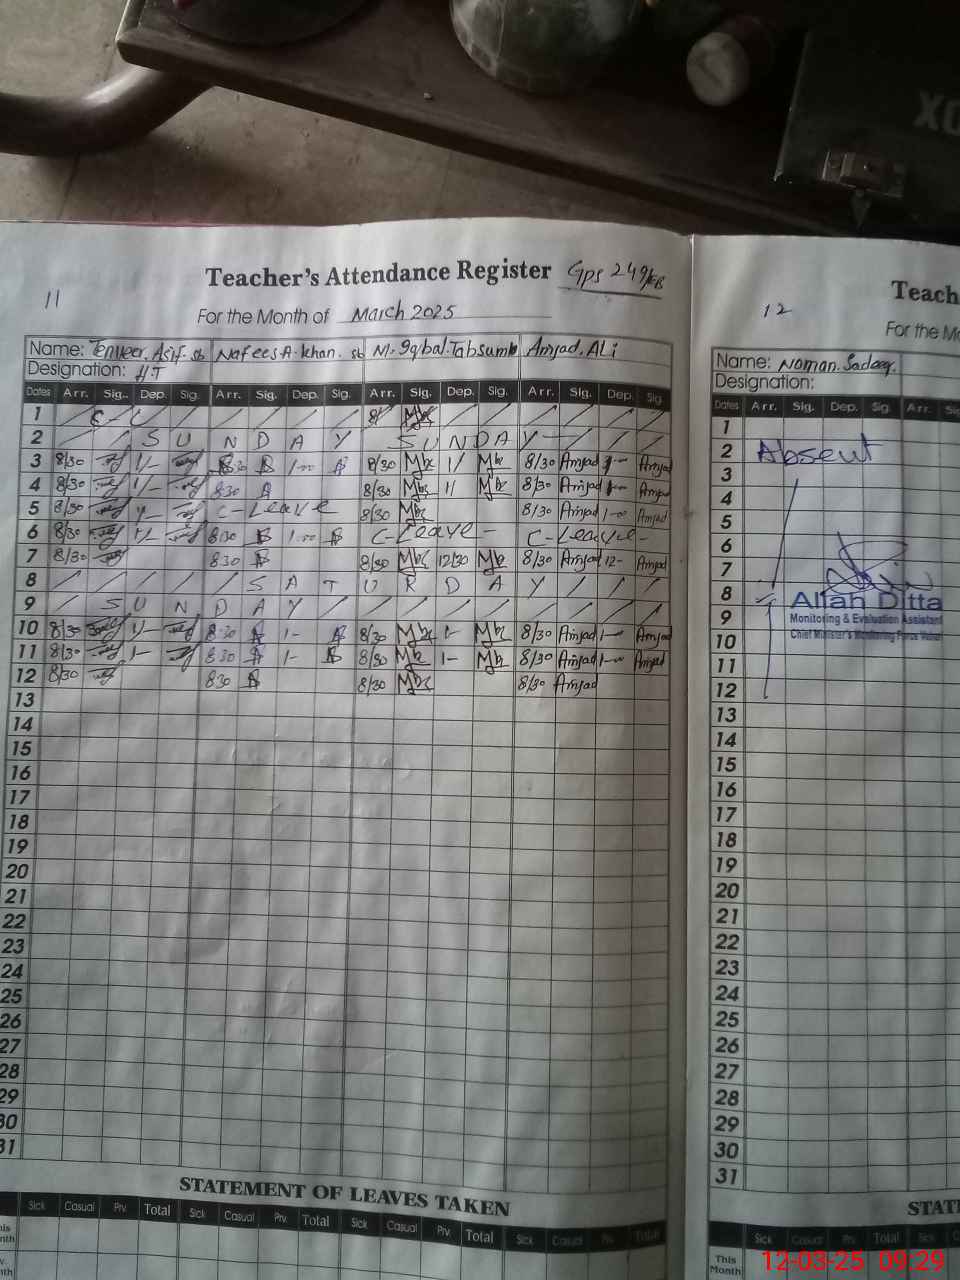 Teacher's Attendance Register Gps 249/EB
11
For the Month of March 2025
Name: Tenveer. Asif. sb Nafees A. khan. sb M. Iqbal. Tabsumb Amjad. ALi
Designation: H.T
Dates Arr. Sig.. Dep. Sig. Arr. Sig. Dep. Sig. Arr. Sig. Dep. Sig. Arr. Sig. Dep. Sig
1 8/
2 S U N D A Y S U N D A Y
3 8/30 1/- 8:30 1-00 8/30 1/ 8/30 Amjad 1-00 Amjad
4 8/30 1/- 830 8/30 1/ 8/30 Amjad Amjad
5 8/30 C-Leave 8/30 8/30 Amjad 1-00 Amjad
6 8/30 1/- 8:30 1-00 C-Leave - C-Leave-
7 8/30 830 8/30 12/30 8/30 Amjad 12- Amjad
8 S A T U R D A Y
9 S U N D A Y
10 8/30 8:30 1- 8/30 1- 8/30 Amjad 1- Amjad
11 8/30 1- 830 1- 8/30 1- 8/30 Amjad 1-00 Amjad
12 8/30 830 8/30 8/30 Amjad
13
14
15
16
17
18
19
20
21
22
23
24
25
26
27
28
29
30
31
STATEMENT OF LEAVES TAKEN
Sick Casual Prv. Total Sick Casual Prv. Total Sick Casual Prv. Total Sick Casual Prv. Total
12
Teach
For the M
Name: Noman. Sadeeq.
Designation:
Dates Arr. Sig. Dep. Sig. Arr.
1
2 Absent
3
4
5
6
7
8
Allah Ditta
9
Monitoring & Evaluation Assistant
10
Chief Minister's Monitoring Force
11
12
13
14
15
16
17
18
19
20
21
22
23
24
25
26
27
28
29
30
31
STAT
Sick Casual Prv. Total Sick
This
Month
12-03-25 09:29